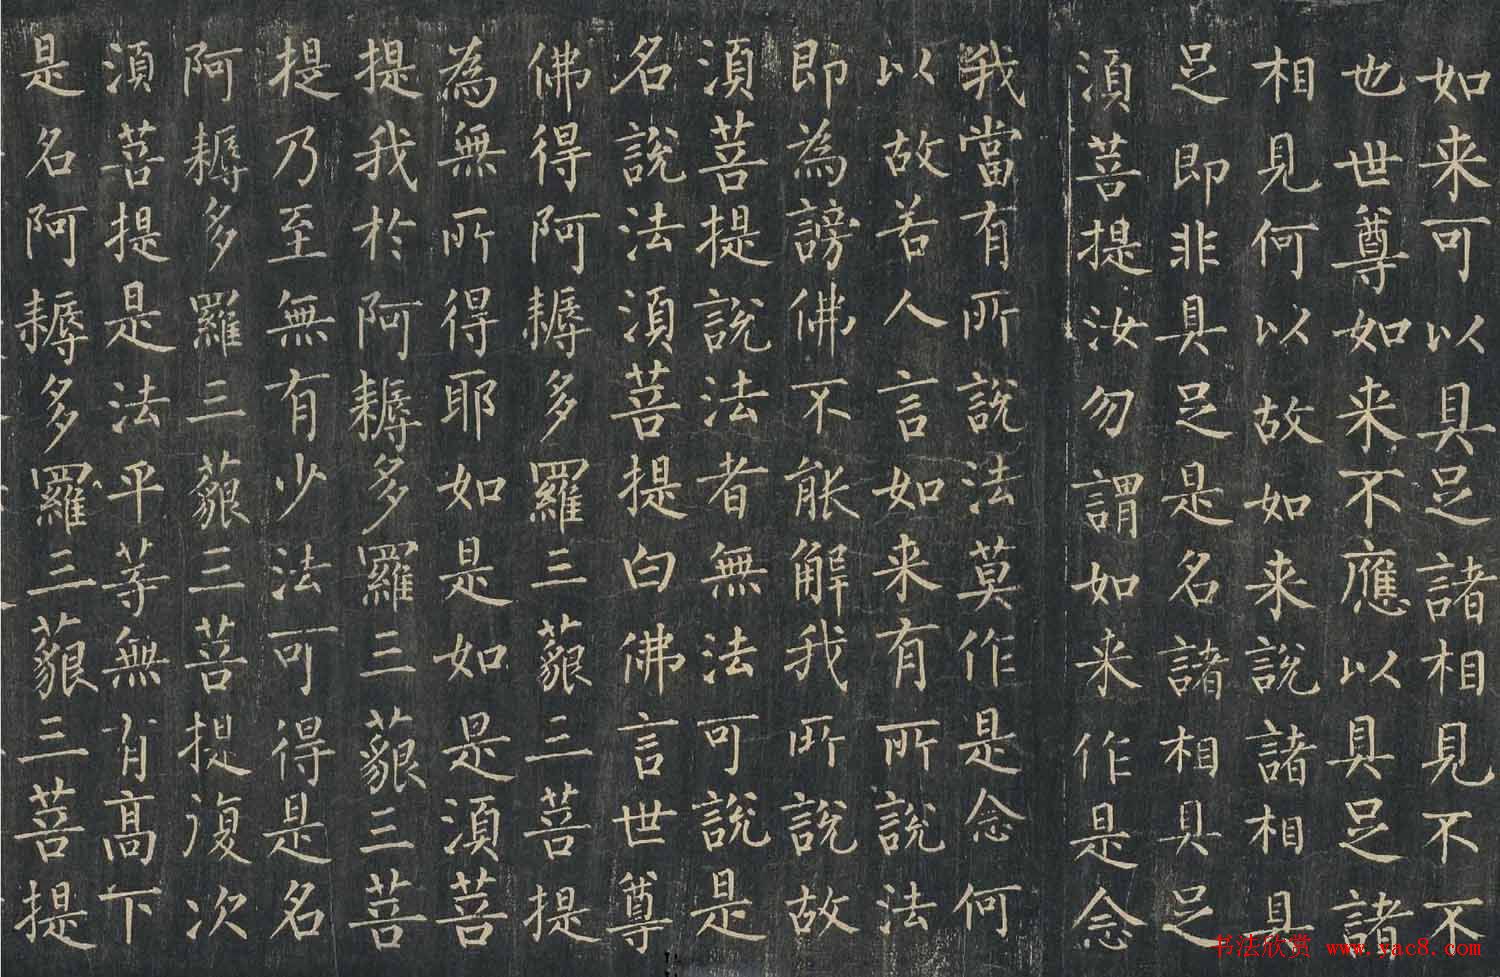 如来可以具足諸相見不不
也世尊如来不應以具足諸
相見何以故如来說諸相具
足即非具足是名諸相具足
須菩提汝勿謂如来作是念
我當有所說法莫作是念何
以故若人言如来有所說法
即為謗佛不能解我所說故
須菩提說法者無法可說是
名說法須菩提白佛言世尊
佛得阿耨多羅三藐三菩提
為無所得耶如是如是須菩
提我於阿耨多羅三藐三菩
提乃至無有少法可得是名
阿耨多羅三藐三菩提復次
須菩提是法平等無有高下
是名阿耨多羅三藐三菩提
书法欣赏 www.yac8.com